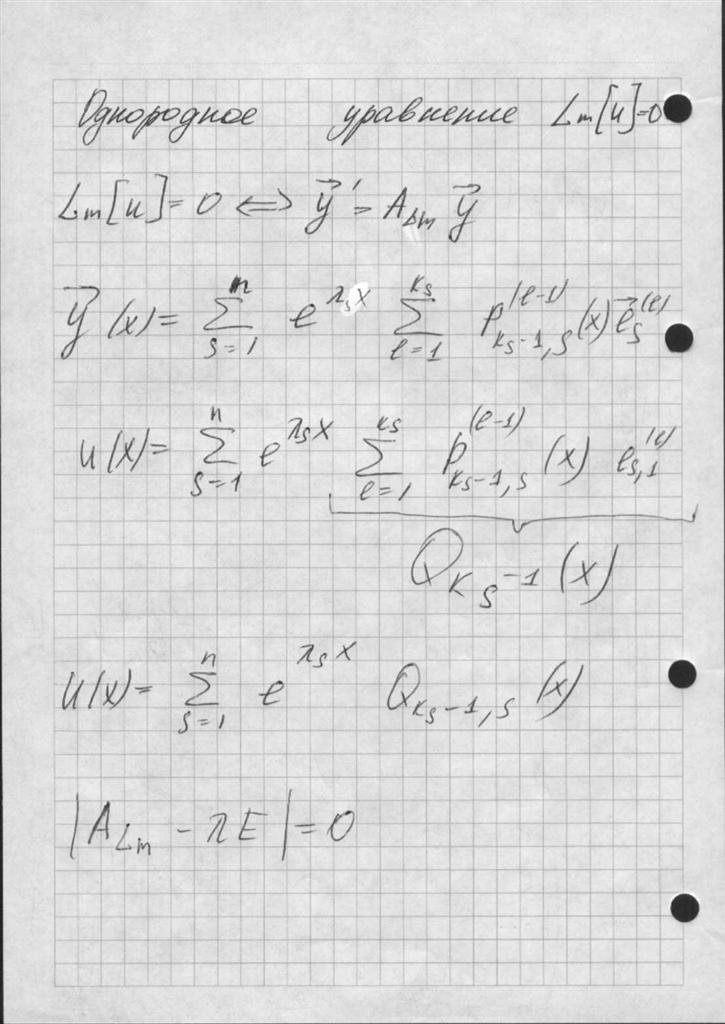 Однородное уравнение Lm[u]=0
Lm[u]=0 ⟺ y⃗' = A_{Lm} y⃗
y⃗(x) = ∑_{s=1}^{n} e^{λ_s x} ∑_{l=1}^{k_s} P_{k_s-1,s}^{(l-1)}(x) e⃗_s^{(l)}
u(x) = ∑_{s=1}^{n} e^{λ_s x} ∑_{l=1}^{k_s} P_{k_s-1,s}^{(l-1)}(x) e_{s,1}^{(l)}
Q_{k_s-1}(x)
u(x) = ∑_{s=1}^{n} e^{λ_s x} Q_{k_s-1,s}(x)
|A_{Lm} - λE| = 0